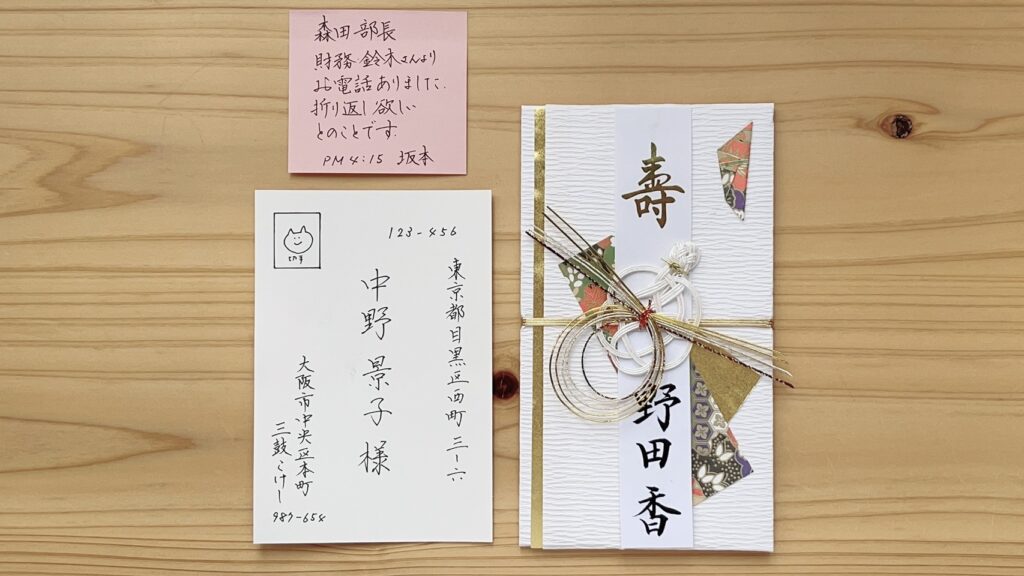 森田部長
財務 鈴木さんより
お電話ありました.
折り返し欲しい
とのことです.
PM 4:15 坂本
123-456
東京都目黒区西町 三ー六
中野 景子 様
大阪市中央区本町
987-654
壽
野田 香